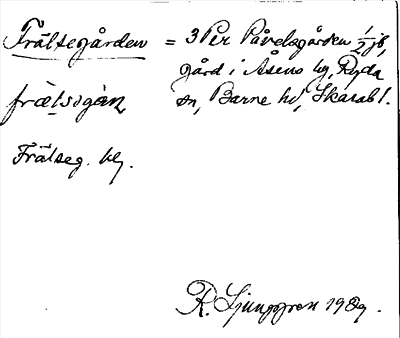 Frälsegården = 3 Per Påvelsgården 1/2 jb,
gård i Åsens by, Ryda
sn, Barne hd, Skarab l.
frælsogàṇ
Frälseg. by.
R. Ljunggren 1929.